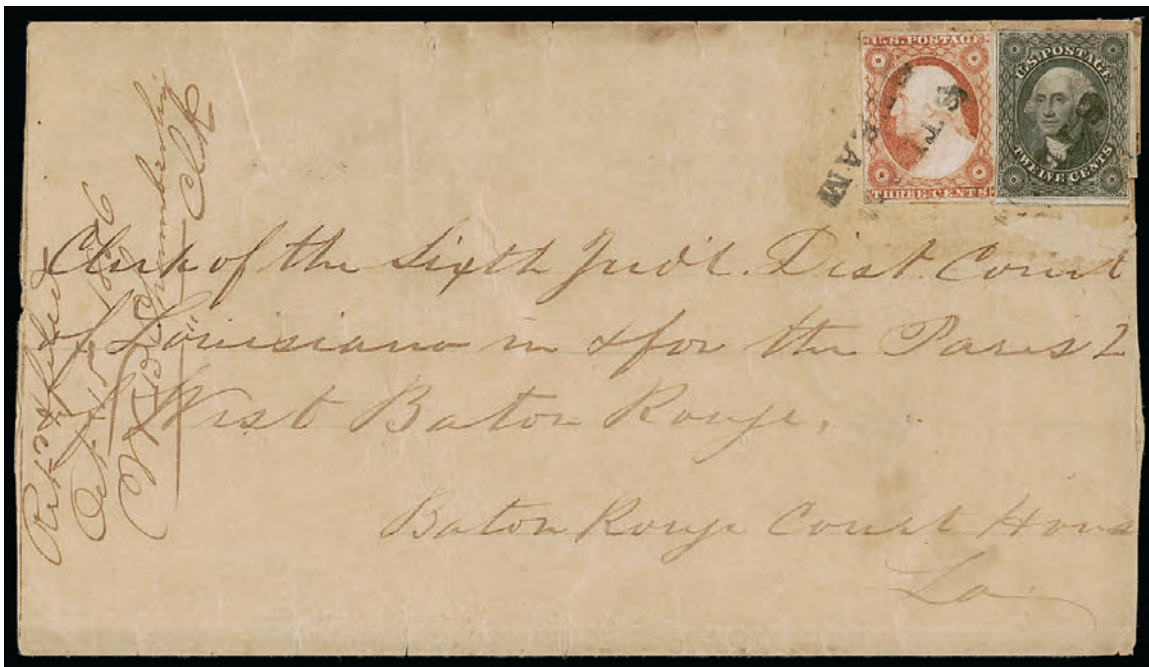 U.S. POSTAGE
THREE CENTS
U.S. POSTAGE
TWELVE CENTS
STEAM
Clerk of the Sixth Judl. Dist. Court
of Louisiana in & for the Parish
of West Baton Rouge,
Baton Rouge Court Hous
La.
Oct 15 1856
Clk